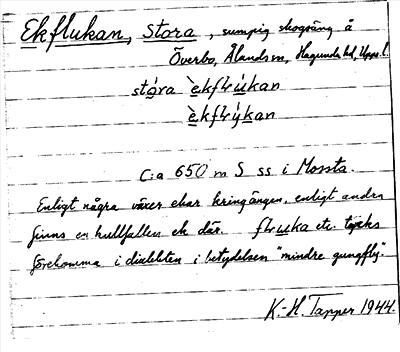 Ekflukan, stora, sumpig skogsäng å
Överbo, Ålands sn, Hagunda hd, Upps. l.
stóra èkflúkan
èkflýkan
C:a 650 m S ss i Mossta.
Enligt några växer ekar kringängen, enligt andra
finns en kullfallen ek där. fluka etc. tycks
förekomma i dialekten i betydelsen "mindre gungfly".
K.-H. Tapper 1944.